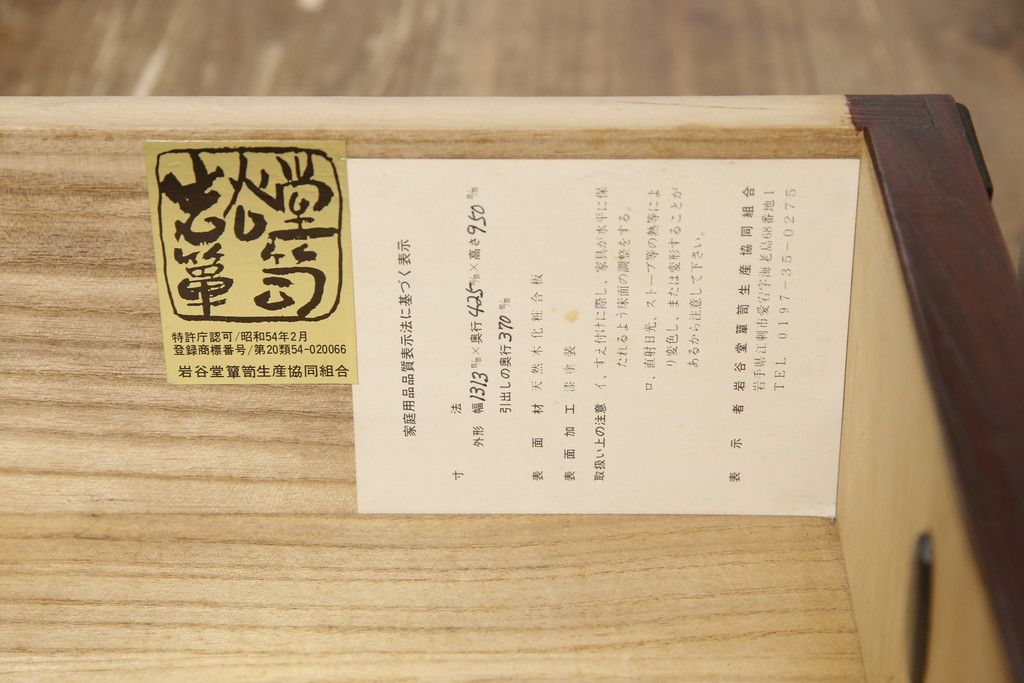 岩谷堂簞笥
特許庁認可/昭和54年2月
登録商標番号/第20類54-020066
岩谷堂簞笥生産協同組合
家庭用品品質表示法に基づく表示
寸 法
外形 幅1313m/m×奥行425m/m×高さ950m/m
引出しの奥行370m/m
表面材 天然木化粧合板
表面加工 漆塗装
取扱い上の注意 イ、すえ付けに際し、家具が水平に保
たれるよう床面の調整をする。
ロ、直射日光、ストーブ等の熱等によ
り変色し、または変形することが
あるから注意して下さい。
表示者 岩谷堂簞笥生産協同組合
岩手県江刺市愛宕字海老島68番地1
TEL 0197-35-0275